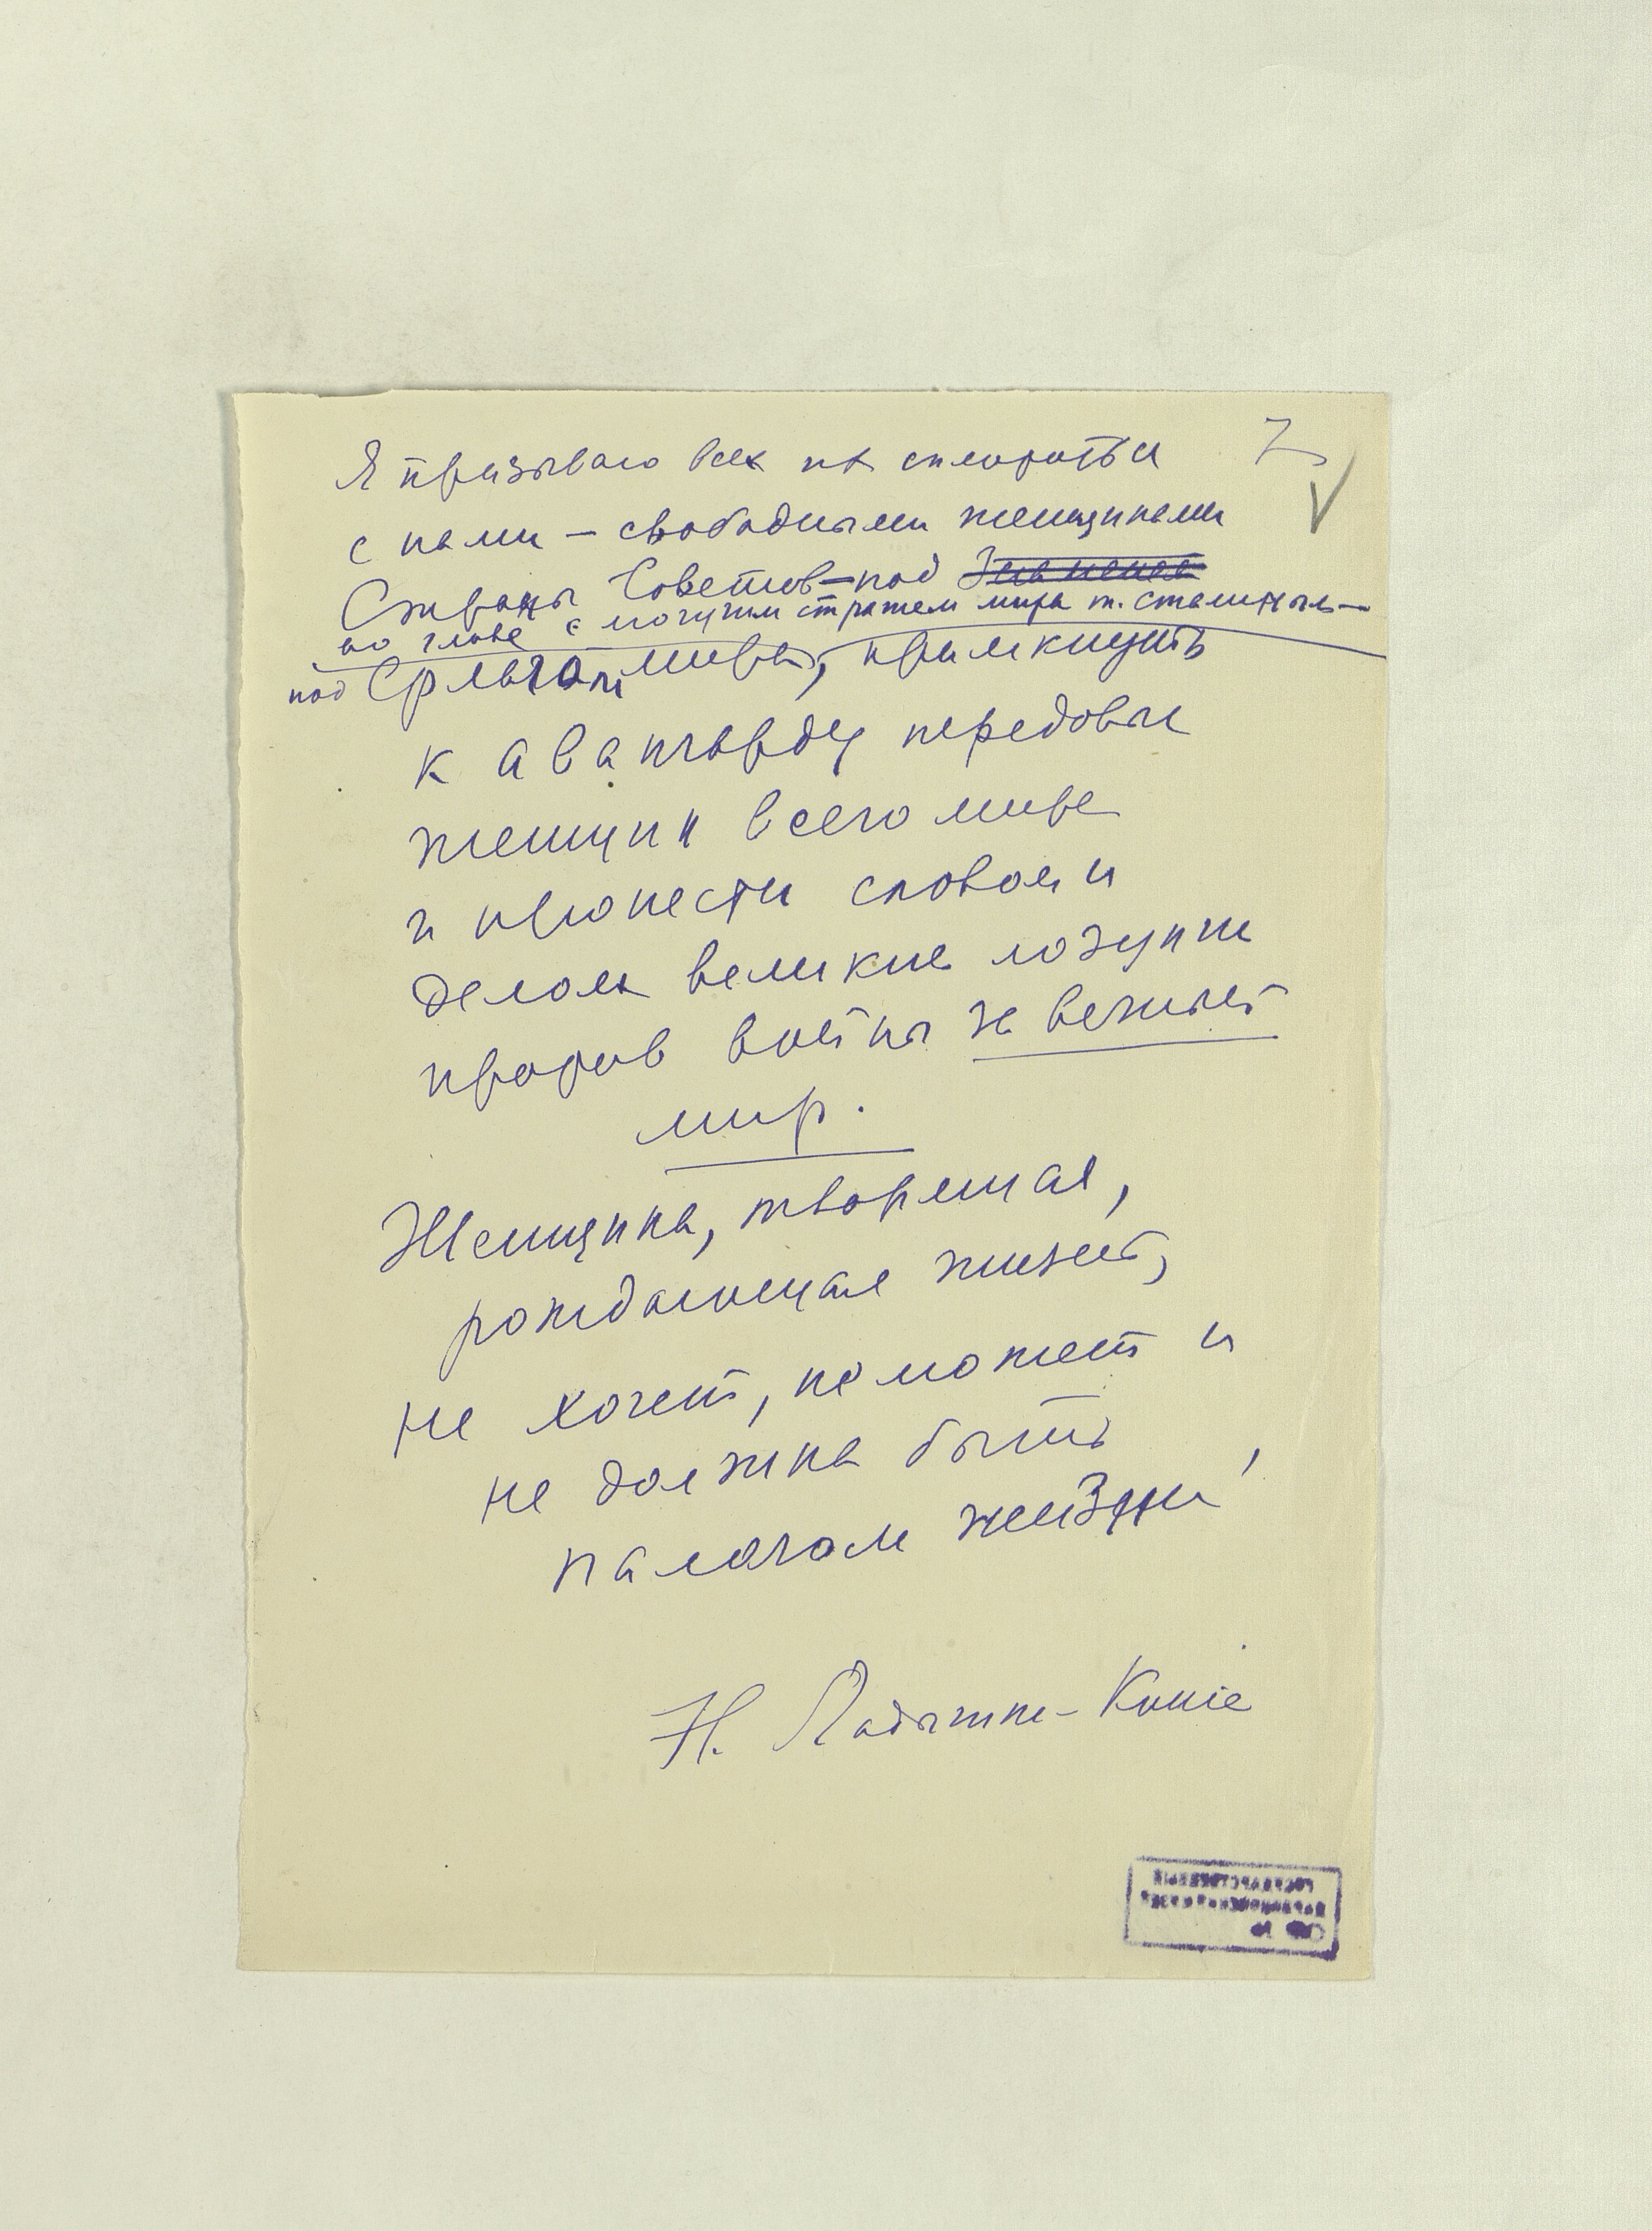 7
Я призываю всех их сплотиться
с нами – свободными женщинами
Страны Советов – под знаменем
во главе с могучим стражем мира т. Сталиным –
под флагом мира, примкнуть
к авангарду передовых
женщин всего мира
и пронести словом и
делом великие лозунги
против войны за вечный
мир.
Женщина, творящая,
рождающая жизнь,
не хочет, не может и
не должна быть
палачом жизни
Н. Ладыжне-
ГОСУДАРСТВЕННЫЙ